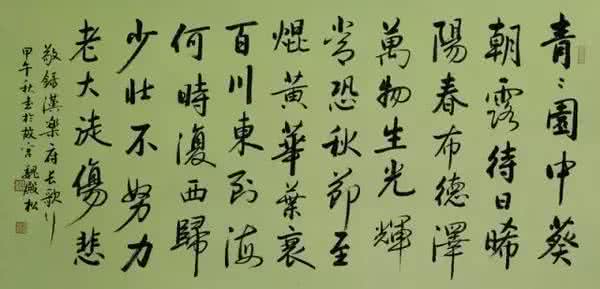 青〻園中葵
朝露待日晞
陽春布德澤
萬物生光輝
常恐秋節至
焜黃華葉衰
百川東到海
何時復西歸
少壯不努力
老大徒傷悲
敬錄漢樂府長歌行
甲午秋書於故宮魏殿松